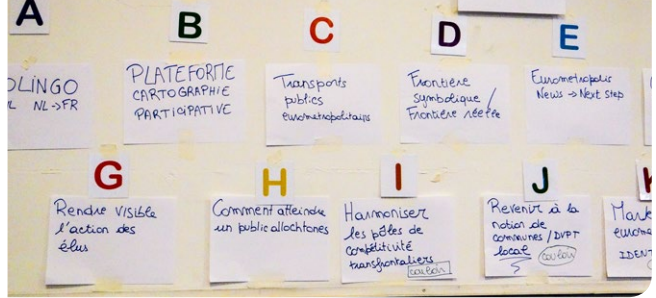 A
B
C
D
E
OLINGO
NL->FR
PLATEFORME
CARTOGRAPHIE
PARTICIPATIVE
Transports
publics
eurometropolitains
Frontière
symbolique /
Frontière réelle
Eurometropolis
News -> Next step
G
H
I
J
K
Rendre visible
l'action des
élus
Comment atteindre
un public allochtones
Harmoniser
les pôles de
compétitivité
transfrontaliers
couloir
Revenir à la
notion de
communes / DVPT
local
couloir
Mark
eurome
IDENT